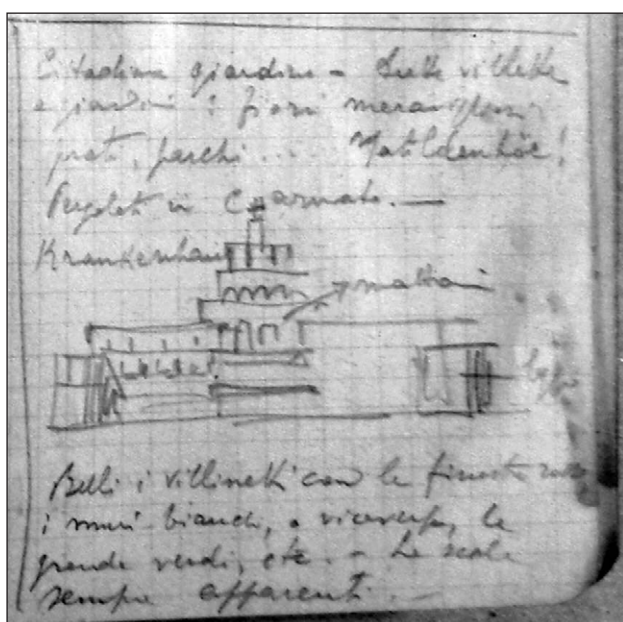 Cittadina giardino – Tutte villette
e giardini : fiori meravigliosi
prati, parchi ... Matildenhöe!
Pergolati in C armato. —
Krankenhaus
mattoni
Belli i villinetti con le finestre
i muri bianchi, o viceversa, le
gronde verdi, etc. – Le scale
sempre apparenti. —